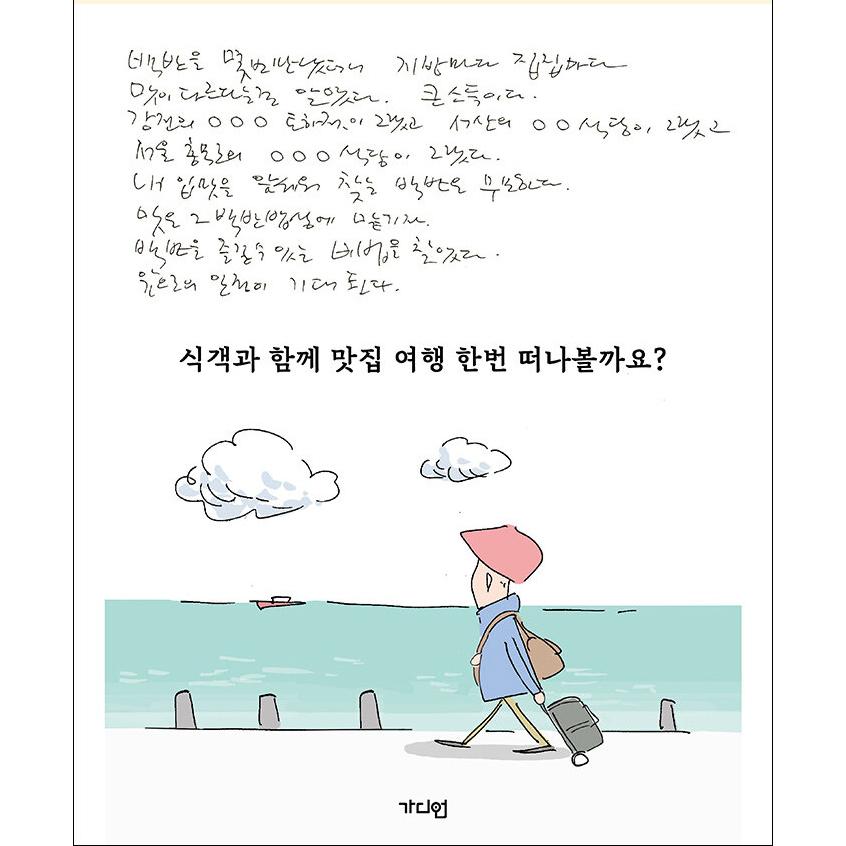 백반을 몇 번 만났더니 지방마다 집집마다
맛이 다르다는 걸 알았다. 큰 소득이다.
강진의 ○○○ 토하젓이 그랬고 서산의 ○○식당이 그랬고
서울 충무로의 ○○○식당이 그랬다.
내 입맛을 앞세워 찾는 백반은 무모하다.
맛은 그 백반 밥상에 맡기자.
백반을 즐길 수 있는 비법을 찾았다.
앞으로의 일정이 기대된다.
식객과 함께 맛집 여행 한번 떠나볼까요?
가디언